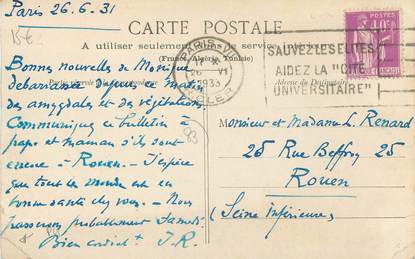 Paris 26.6.31
CARTE POSTALE
A utiliser seulement dans le service
(France, Algérie, Tunisie)
Bonnes nouvelles de Monique
débarrassée depuis ce matin
des amygdales et des végétations
Communiquez ce bulletin à
papa et maman s'ils sont
encore à Rouen. J'espère
que tout le monde est en
bonne santé chez vous. Nous
passerons probablement Samedi.
Bien cordialt J.R.
PARIS VII
26 VI
SAUVEZ LES ELITES
AIDEZ LA "CITÉ
UNIVERSITAIRE"
Monsieur et Madame L. Renard
25 Rue Beffroy 25
Rouen
(Seine Inférieure)